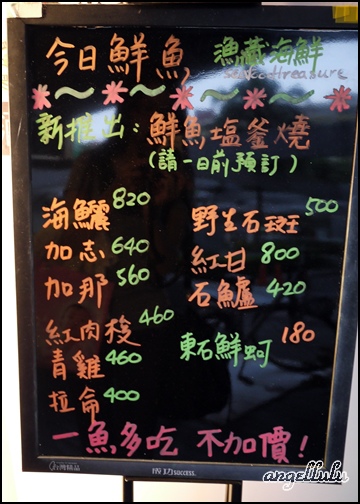 今日鮮魚 漁藏海鮮
Seafood treasure
新推出：鮮魚塩釜燒
(請一日前預訂)
海鱺 820
加志 640
加那 560
紅肉棪 460
青雞 460
拉侖 400
野生石斑 500
紅甘 800
石鱸 420
東石鮮蚵 180
一魚多吃 不加價！
成功 success.
angellulu